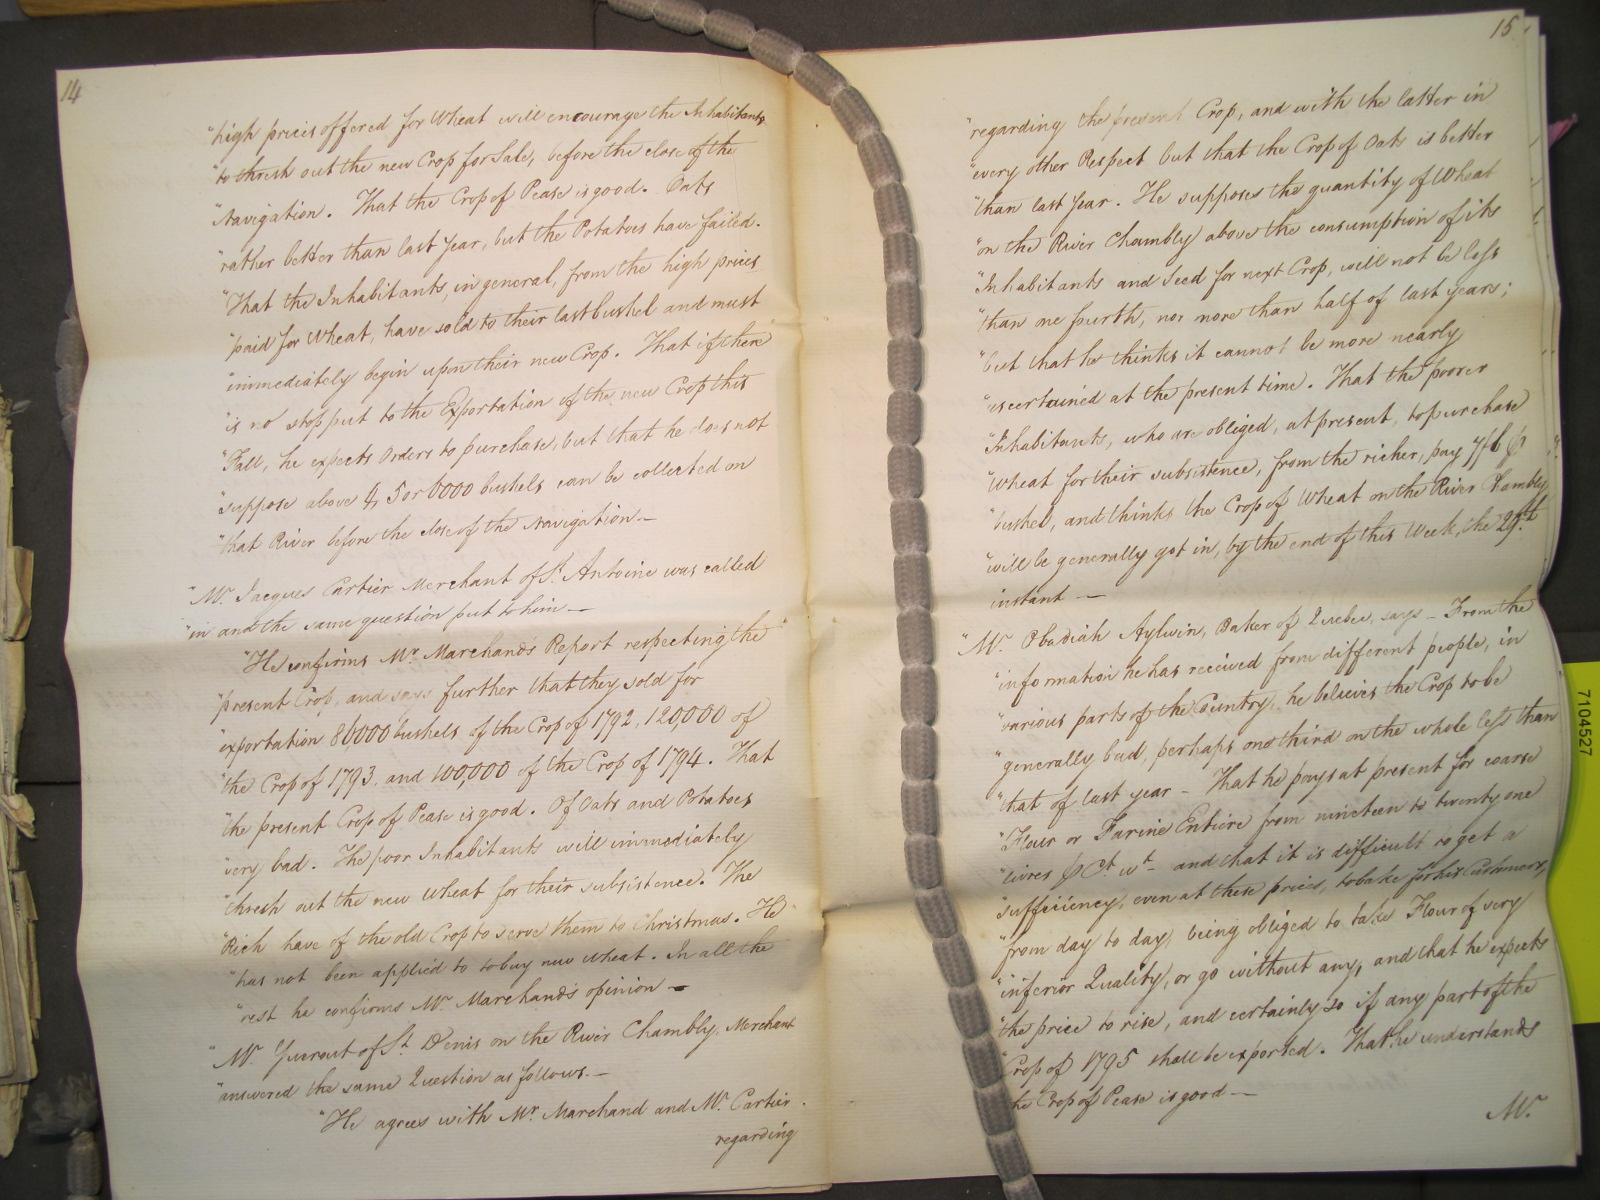 14
"high prices offered for Wheat will encourage the Inhabitants
"to thresh out the new Crop for Sale, before the close of the
"Navigation. That the Crop of Pease is good. Oats
"rather better than last year, but the Potatoes have failed.
"That the Inhabitants, in general, from the high prices
"paid for Wheat, have sold to their last bushel and must
"immediately begin upon their new Crop. That if there
"is no stop put to the Exportation of the new Crop this
"Fall, he expects Orders to purchase, but that he does not
"suppose above 4, 5 or 6000 bushels can be collected on
"that River before the close of the Navigation.—
"Mr. Jacques Cartier Merchant of St. Antoine was called
"in and the same question put to him—
"He confirms Mr. Marchand's Report respecting the
"present Crop, and says further that they sold for
"exportation 86000 bushels of the Crop of 1792, 120,000 of
"the Crop of 1793, and 100,000 of the Crop of 1794. That
"the present Crop of Pease is good. Of Oats and Potatoes
"very bad. The poor Inhabitants will immediately
"thresh out the new Wheat for their subsistence. The
"Rich have of the old Crop to serve them to Christmas. He
"has not been applied to to buy new Wheat. In all the
"rest he confirms Mr. Marchand's opinion—
"Mr. Guerout of St. Denis on the River Chambly, Merchant
"answered the same Question as follows.—
"He agrees with Mr. Marchand and Mr. Cartier
regarding
15
"regarding the present Crop, and with the latter in
"every other Respect but that the Crop of Oats is better
"than last year. He supposes the quantity of Wheat
"on the River Chambly above the consumption of its
"Inhabitants and Seed for next Crop, will not be less
"than one fourth, nor more than half of last years;
"but that he thinks it cannot be more nearly
"ascertained at the present time. That the poorer
"Inhabitants, who are obliged, at present, to purchase
"Wheat for their subsistence, from the richer, pay 7/6 ⅌
"bushel, and thinks the Crop of Wheat on the River Chambly
"will be generally got in, by the end of this Week, the 29th.
instant—
"Mr. Obadiah Aylwin, Baker of Quebec, says— From the
"information he has received from different people, in
"various parts of the Country, he believes the Crop to be
"generally bad, perhaps one third on the whole less than
"that of last year— That he pays at present for coarse
"Flour or Farine Entiére from nineteen to twenty one
"livres ⅌ Ct. wt.— and that it is difficult to get a
"sufficiency, even at these prices, to bake for his Customers,
"from day to day, being obliged to take Flour of very
"inferior Quality, or go without any, and that he expects
"the price to rise, and certainly so if any part of the
Crop of 1795 shall be exported. That he understands
the Crop of Pease is good—
Mr.
7104527